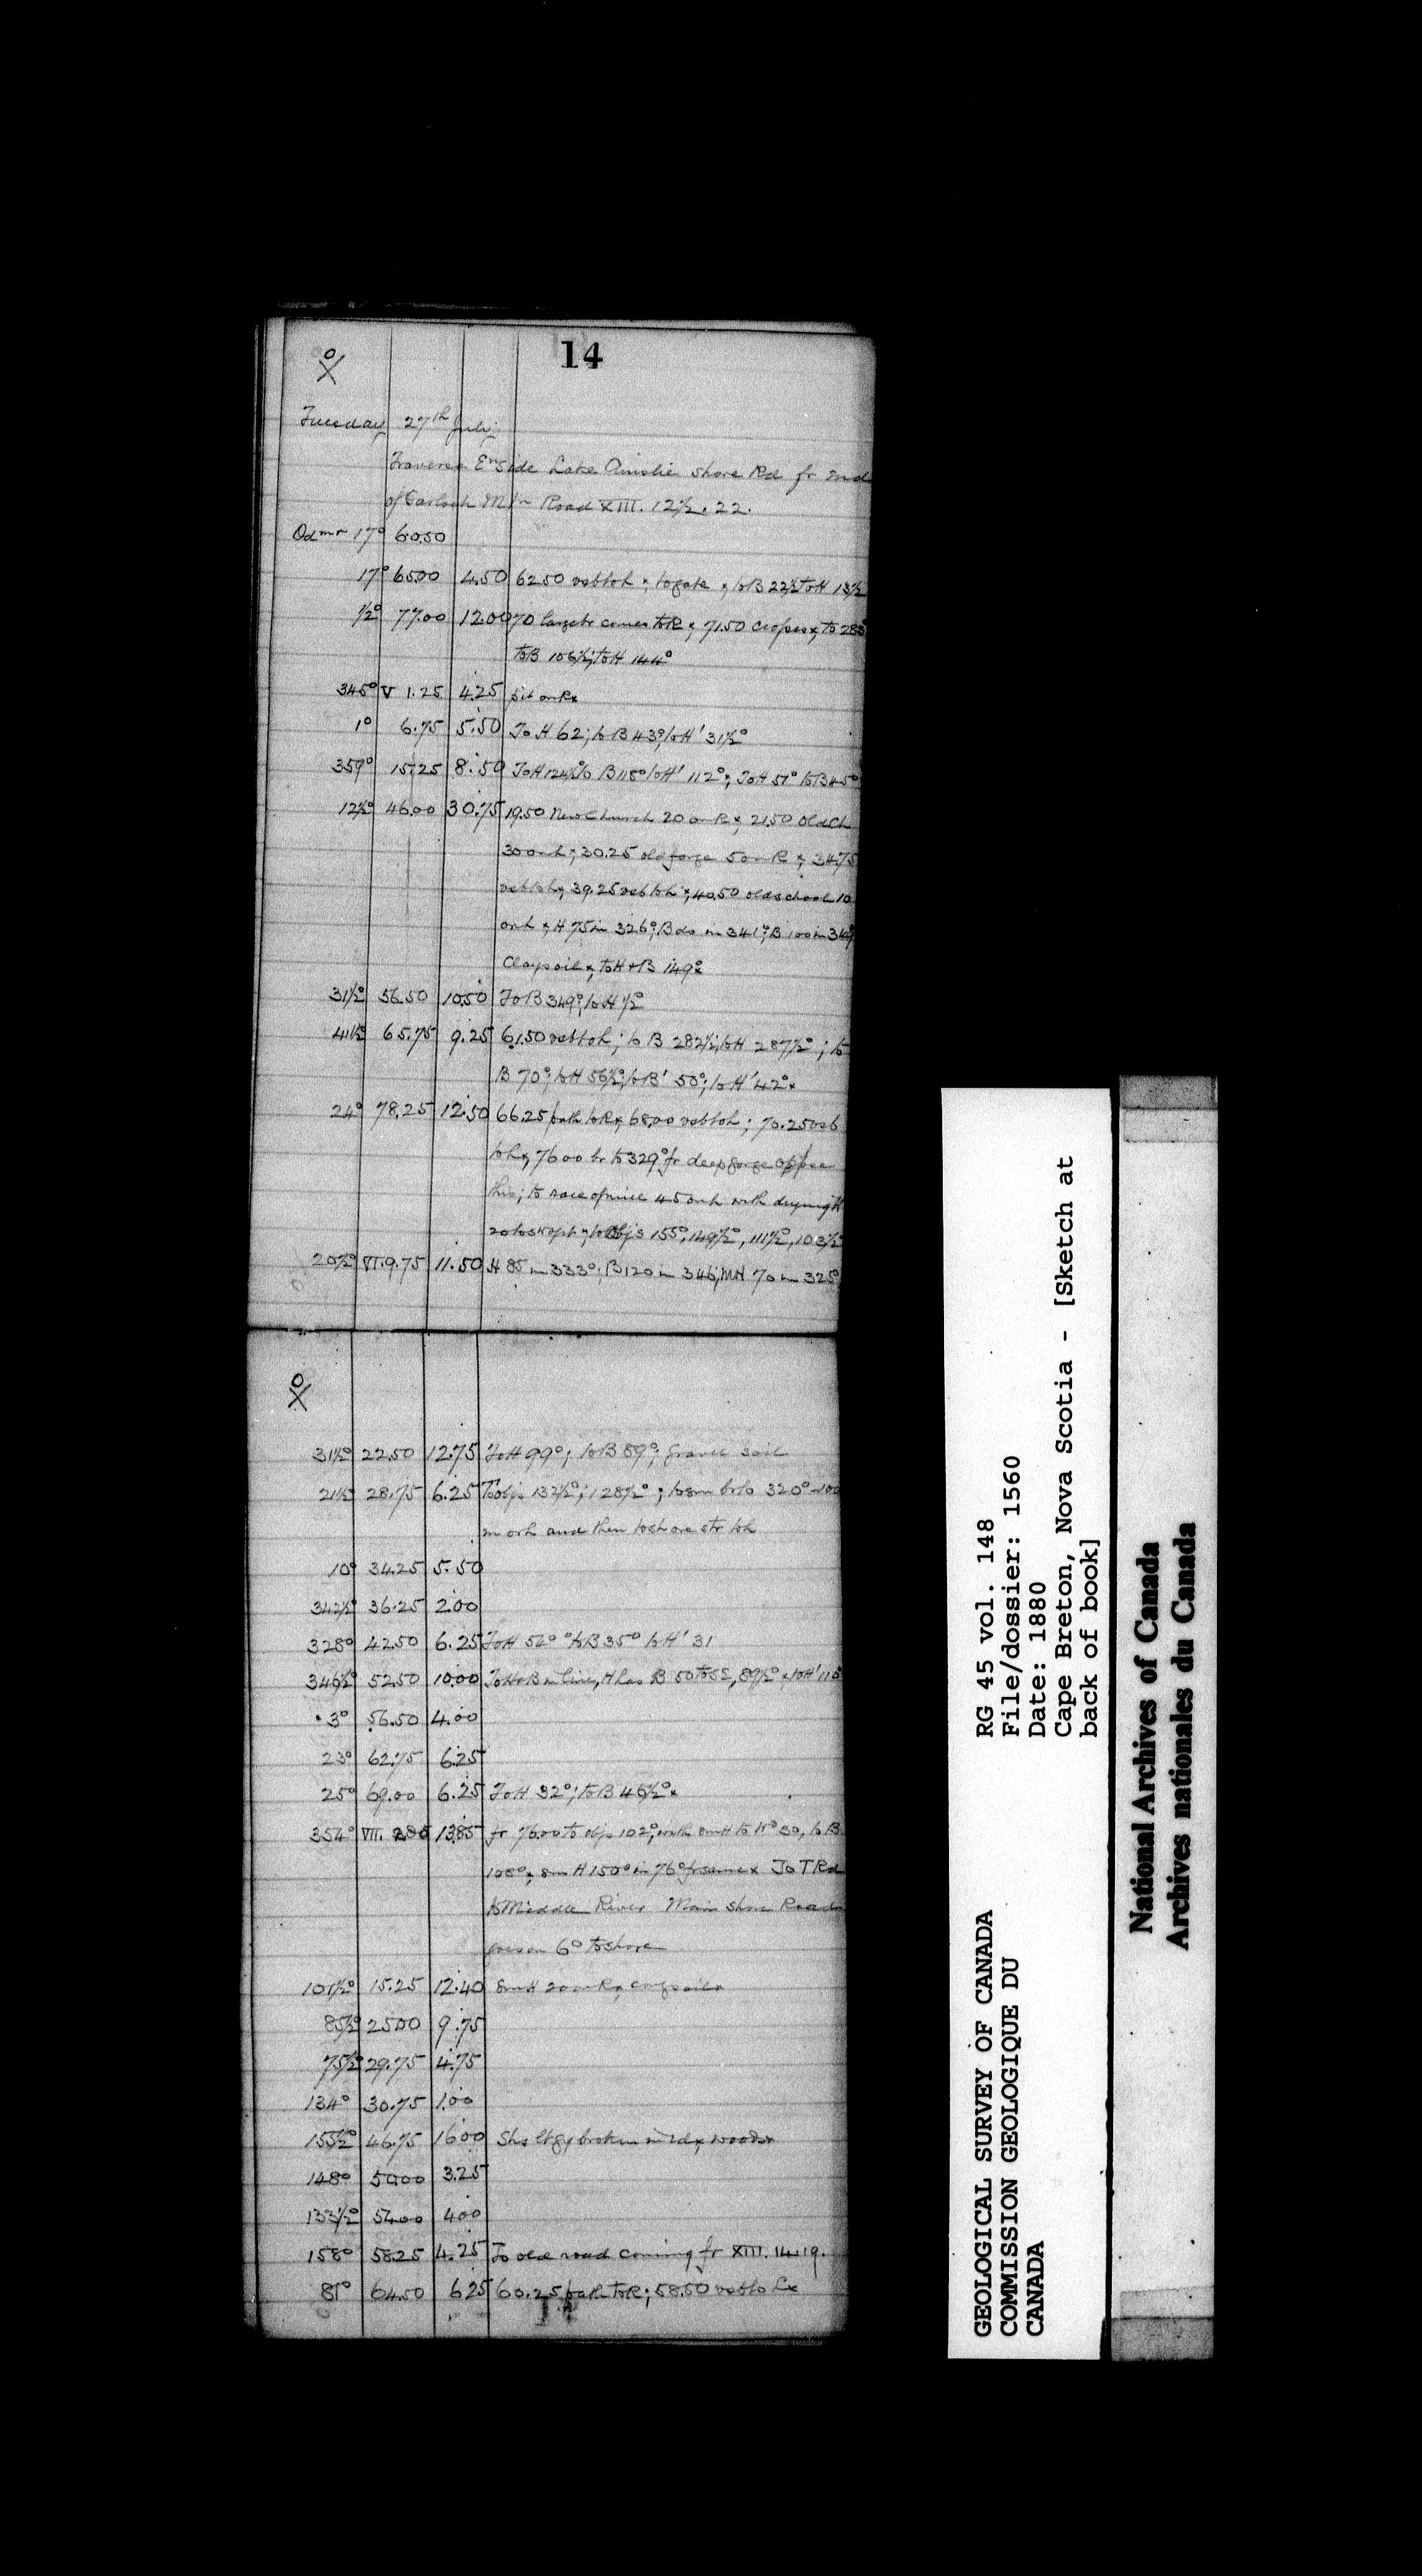 14
Tuesday 27th July.
Traverse En side Lake Ainslie shore Rd fr end
of Mtn Road XIII. 12½. 22.
Odmr 17° 60.50
17° 65.00 4.50 62.50 to gate x, to B 22½ to H 13½
½° 77.00 12.00 70 large br comes to R x, 71.50 x, to 283°
to B 106½; to H 144°
345° V 1.25 4.25 pit on R x
1° 6.75 5.50 To H 62; to B 43°; to H' 31½°
359° 15.25 8.50 To H 124½ To B 118° to H' 112° x; To H 51° to B 45°
12½° 46.00 30.75 19.50 New Church 20 on R x, 21.50 old Ch
30 on L x; 30.25 old forge 5 on R x, 34.75
39.25 40.50 old school 10
on L x, H 75 in 326°; B do in 341°; B 100 in 349
Clay soil x, to H & B 149°
31½° 56.50 10.50 To B 349°; to H ½°
41½ 65.75 9.25 61.50 ; to B 282½; to H 287½°; to
B 70°; to H 56½°; to B' 50°; to H' 42° x
24° 78.25 12.50 66.25 path to R x, 68.00 ; 70.25
to L x, 76.00 br to 329° fr deep gorge oppse
this; to 45 on L with
to Objs 155°, 149½°, 111½°, 103½°
20½° VI. 9.75 11.50 H 85 in 333°; B 120 in 346; MH 70 in 325°
31½° 22.50 12.75 To H 99°; to B 89°; gravel soil
21½ 28.75 6.25 To objs 132½°; 128½°; to sm br to 320° 100
and then to shore str to L
10° 34.25 5.50
342½° 36.25 2.00
328° 42.50 6.25 To H 52° to B 35° to H' 31
346½° 52.50 10.00 To H & B in line, H has B 50 to SE, 89½° x, to H' 115°
3° 56.50 4.00
23° 62.75 6.25
25° 69.00 6.25 To H 32°; to B 46½° x
354° VII. 2.85 13.85 fr 76.00 to objs 102°, with sm H to 30, to B
108° x, sm H 150 in 76° fr same x To T Rd
to Middle River Main Shore Road
goes on 6° to shore
101½° 15.25 12.40 sm H 20 on R x,
85½° 25.00 9.75
75½° 29.75 4.75
134° 30.75 1.00
155½° 46.75 16.00 Shs lt gy broken in rd x, woods x
148° 50.00 3.25
133½° 54.00 4.00
158° 58.25 4.25 To old road coming fr XIII. 14.19.
81° 64.50 6.25 60.25 path to R; 58.50 to L x
GEOLOGICAL SURVEY OF CANADA
COMMISSION GEOLOGIQUE DU
CANADA
RG 45 vol. 148
File/dossier: 1560
Date: 1880
Cape Breton, Nova Scotia - [Sketch at
back of book]
National Archives of Canada
Archives nationales du Canada